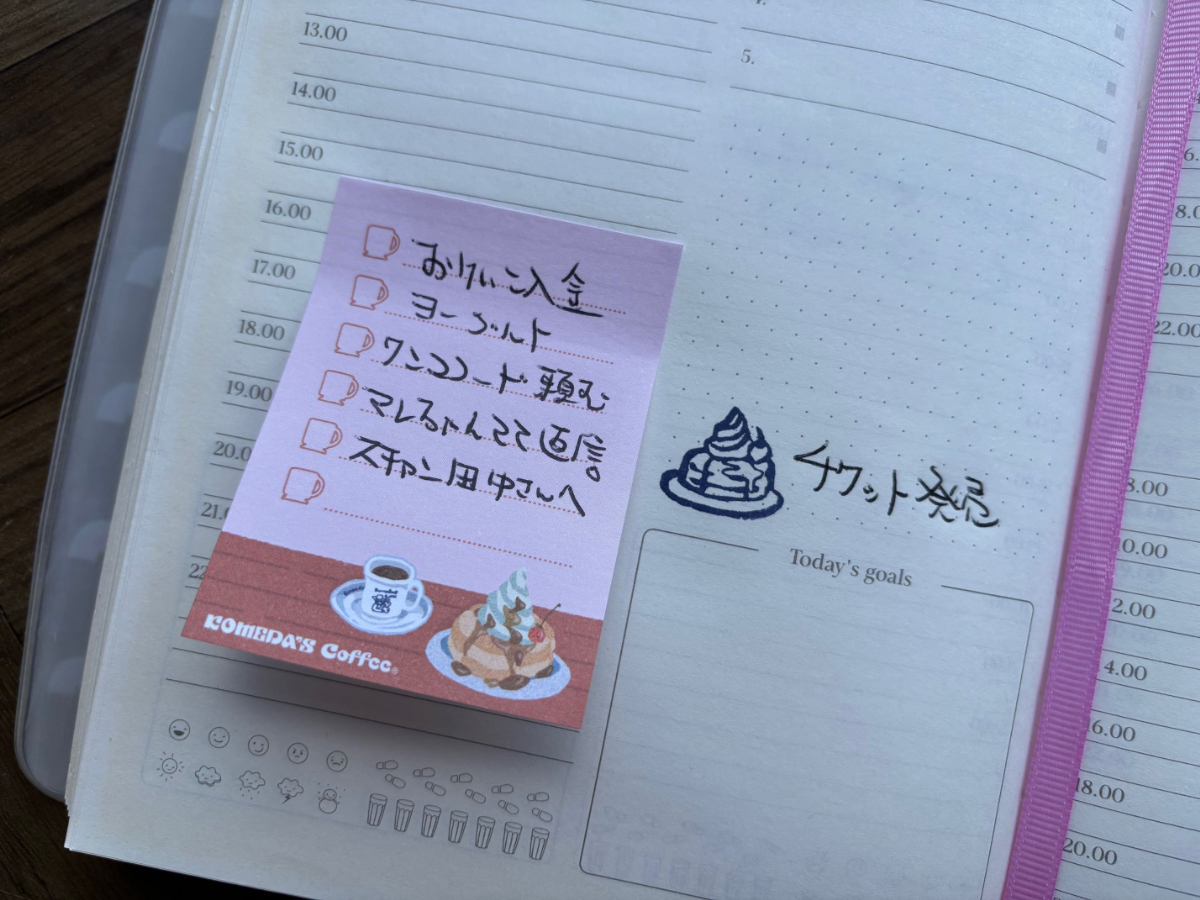 13.00
14.00
15.00
16.00
17.00
18.00
19.00
20.0
21.
22
4.
5.
おけいこ入金
ヨーグルト
ワンコフード 頼む
マレちゃん 返信
スキャン田中さんへ
KOMEDA'S Coffee®
チケット発売
Today's goals
6.
8.0
20.0
22.00
8.00
0.00
2.00
4.00
6.00
18.00
20.00